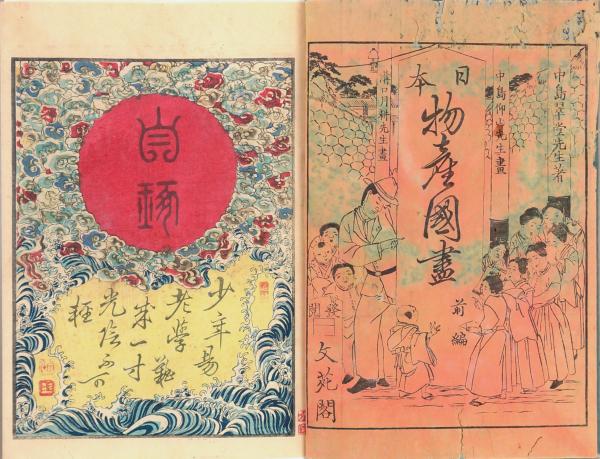 中島翠堂先生著
中島仰山先生畫
日本
物產國盡
前編
溝口月耕先生畫
文苑閣
少年易
老學難
成一寸
光陰不可
輕